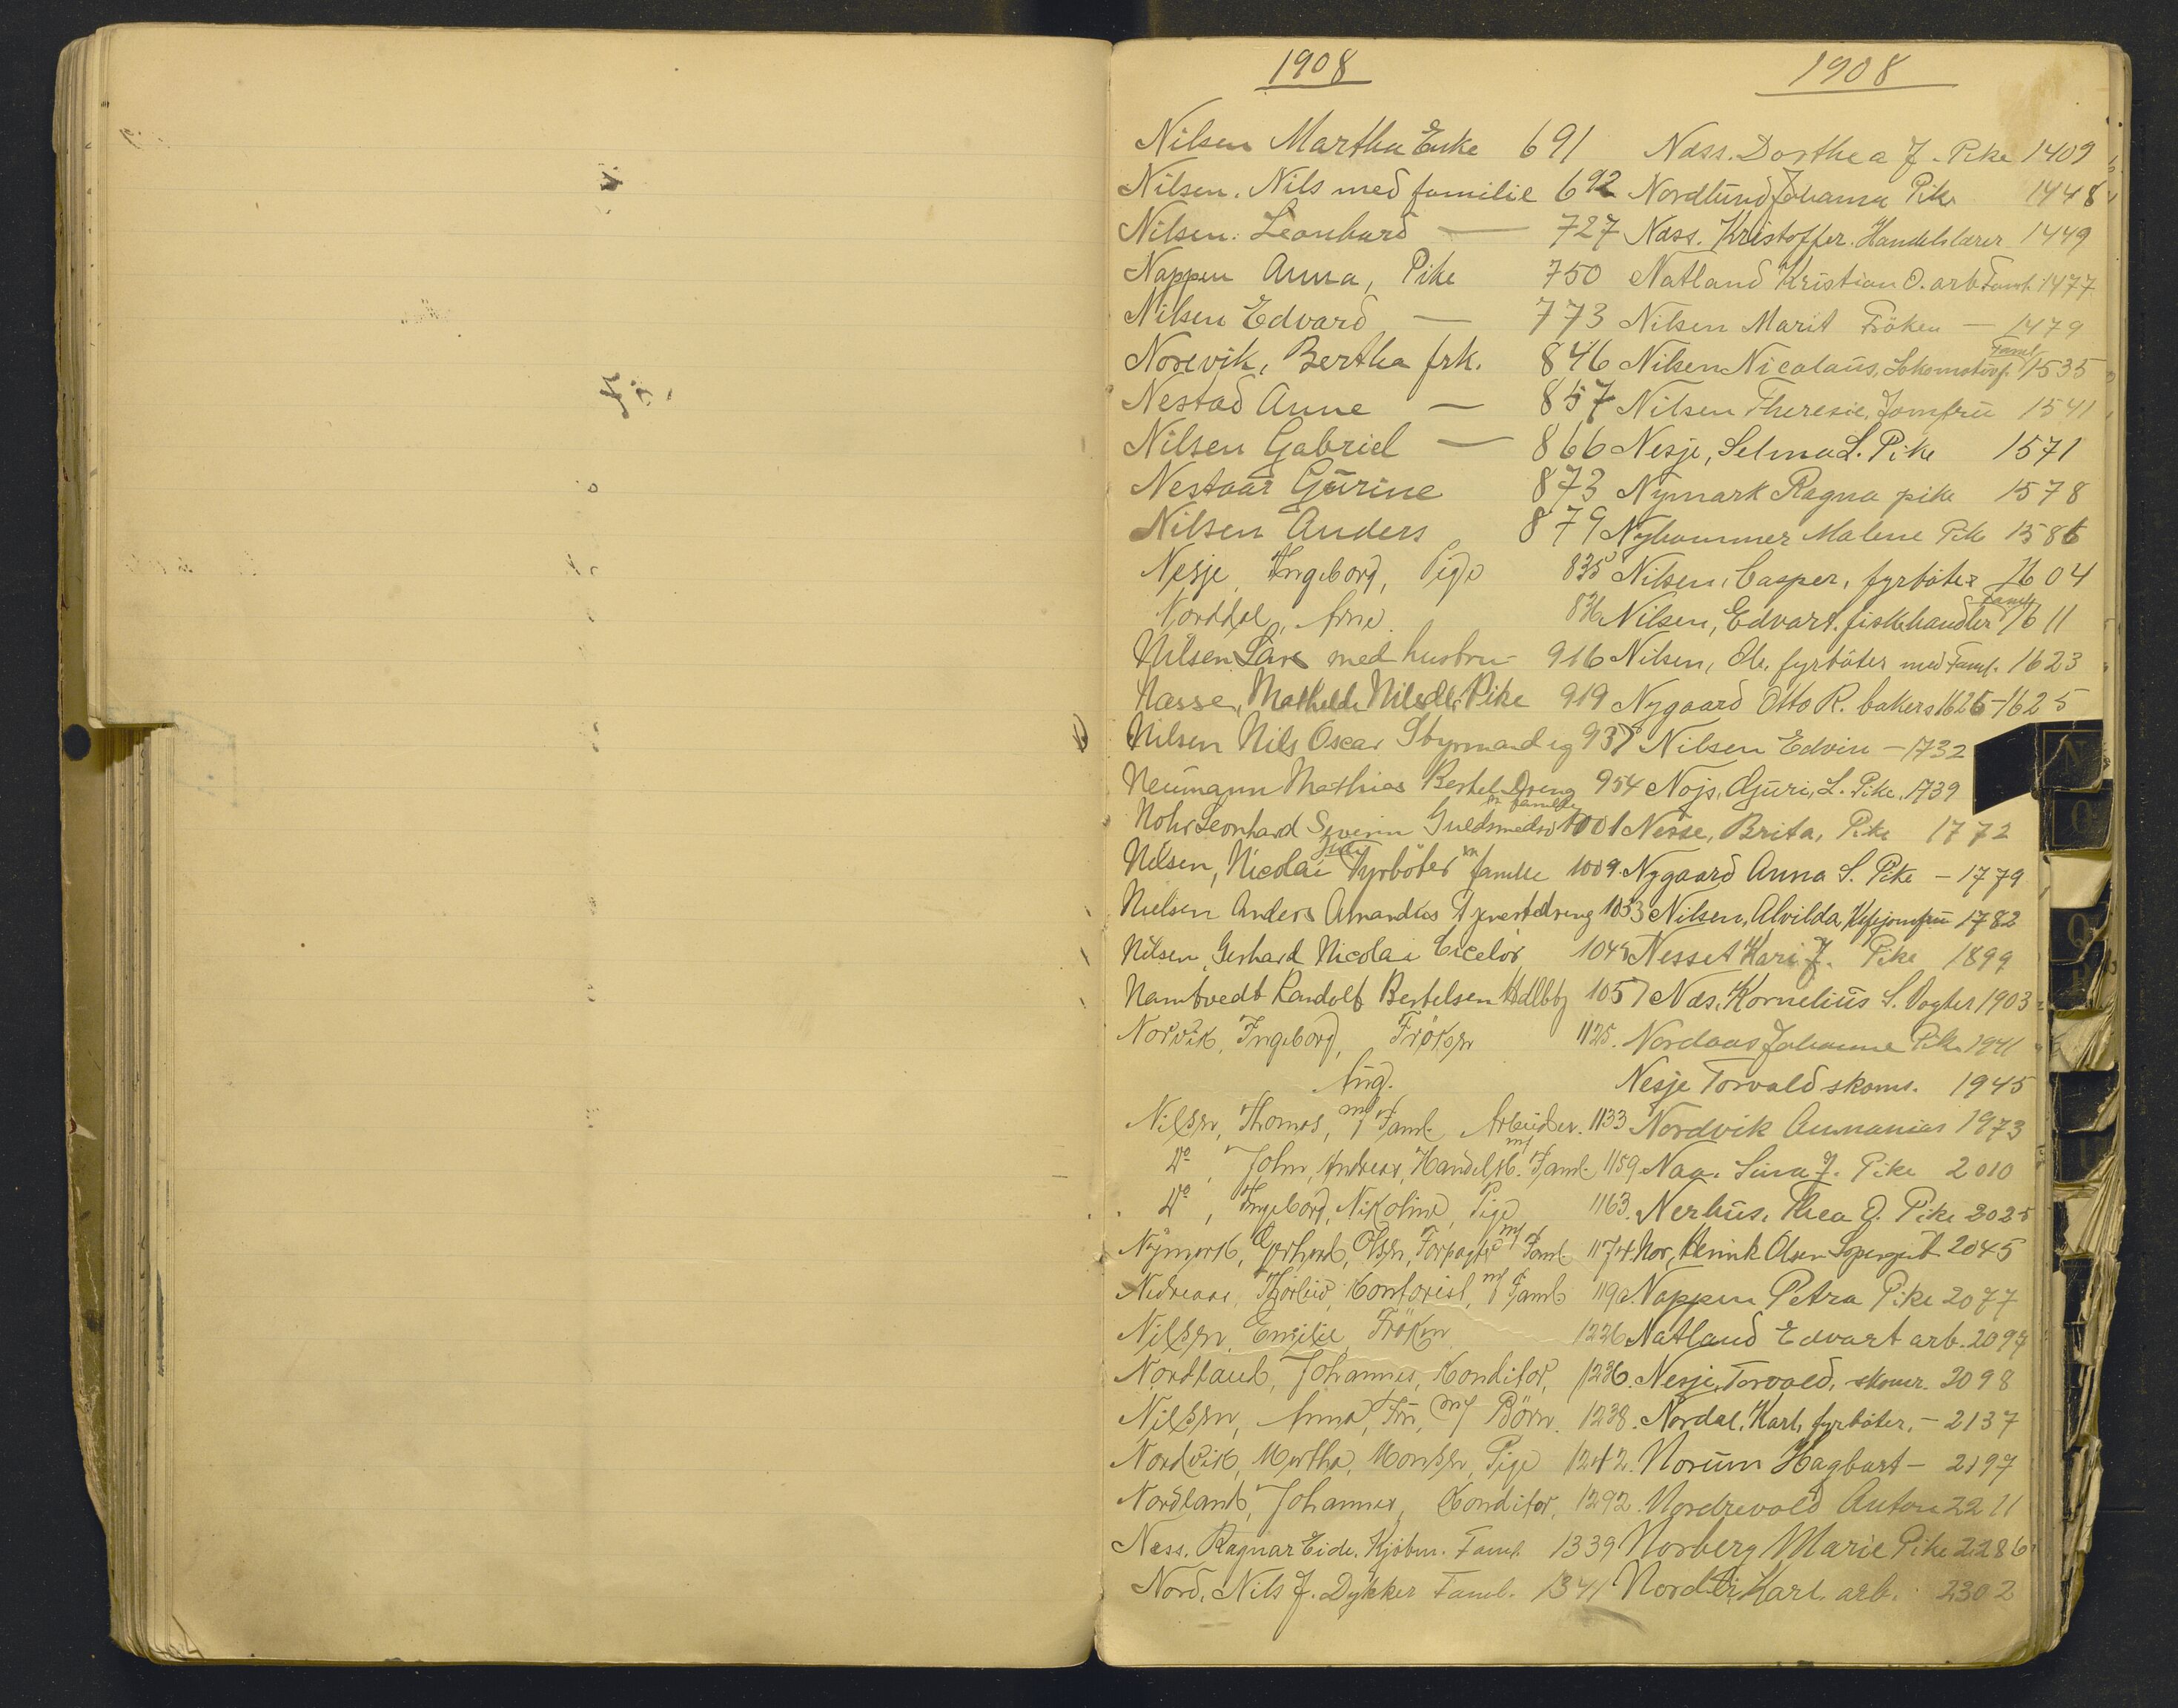 1908
Nilsen Martha Enke 691
Nilsen. Nils med familie 692
Nilsen. Leonhard — 727
Nappen Anna, Pike 750
Nilsen Edvard — 773
Norevik, Bertha frk. 846
Nestad Anne — 857
Nilsen Gabriel — 866
Nestaar Gurine 873
Nilsen Anders 879
Nesje, Ingeborg, Pige 835
Norddal, Arne 836
Nilsen Lars med hustru 916
Nasse, Mathilde Pike 919
Nilsen Nils Oscar Styrmand 937
Neumann Mathias Bertel Dreng 954
Nohr Leonhard Severin Guldsmeds m familie 1001
Nilsen, Nicolai Fyrböter m familie 1009
Nielsen Anders Amandus 1033
Nilsen, Gerhard Nicolai 1045
Namtvedt Randolf Bertelsen 1057
Norvik, Ingeborg, Frøken 1125.
Aug.
Nilsen, Thomas, m/ Faml. Arbeider. 1133
Do, John, Andreas, Handelsb. m/ Faml. 1159
Do, Ingeborg, Nikoline, Pige 1163.
Nymark, Gerhard, Olsen, Forpagter m/ Faml. 1174
Nedreaas, Thorleiv, Kontorist, m/ Faml. 1192.
Nilsen, Emilie, Frøken 1226
Nordland, Johannes, Konditor, 1236.
Nilsen, Anna, Fru, m/ Börn. 1238.
Nordvik, Martha, Monsen, Pige 1242.
Nordland, Johannes, Konditor, 1292.
Ness. Ragnar Eide. Kjöbm. Faml. 1339
Nord, Nils J. Dykker Faml. 1341
1908
Næss. Dorthea J. Pike 1409
Nordlund Johanna Pike 1448
Næss. Kristoffer. Handelslærer 1449
Natland Kristian O. arb Faml. 1477
Nilsen Marit Fröken — 1479
Nilsen Nicolaus, Lokomotivf. Faml 1535
Nilsen Theresie, Jomfru 1541
Nesje, Selma L. Pike 1571
Nymark Ragna pike 1578
Nyhammer Malene Pike 1586
Nilsen, Casper, fyrböter 1604
Nilsen, Edvart. fiskehandler Faml 1611
Nilsen, Ole, fyrböter med Faml. 1623
Nygaard Otto R. bakers 1626-1625
Nilsen Edvin — 1732
Guri, L. Pike. 1739
Nesse, Brita, Pike 1772
Nygaard Anna S. Pike — 1779
Nilsen, Alvilda, 1782
Nesset Kari J. Pike 1899
Næs, Kornelius S. Vogter 1903
Nordaas Johanne Pike 1941
Nesje Torvald skom. 1945
Nordvik Annanias 1973
Naa. Sina J. Pike 2010
Nerhus, Thea O. Pike 2025
Nor, Henrik Olsen 2045
Nappen Petra Pike 2077
Natland Edvart arb. 2097
Nesje, Torvald, skom. 2098
Nordal, Karl, fyrböter, — 2137
Norum Hagbart — 2197
Nordrevold Anton 2211
Norberg Marie Pike 2286
Nordli Karl arb. 2302
N
O
Q